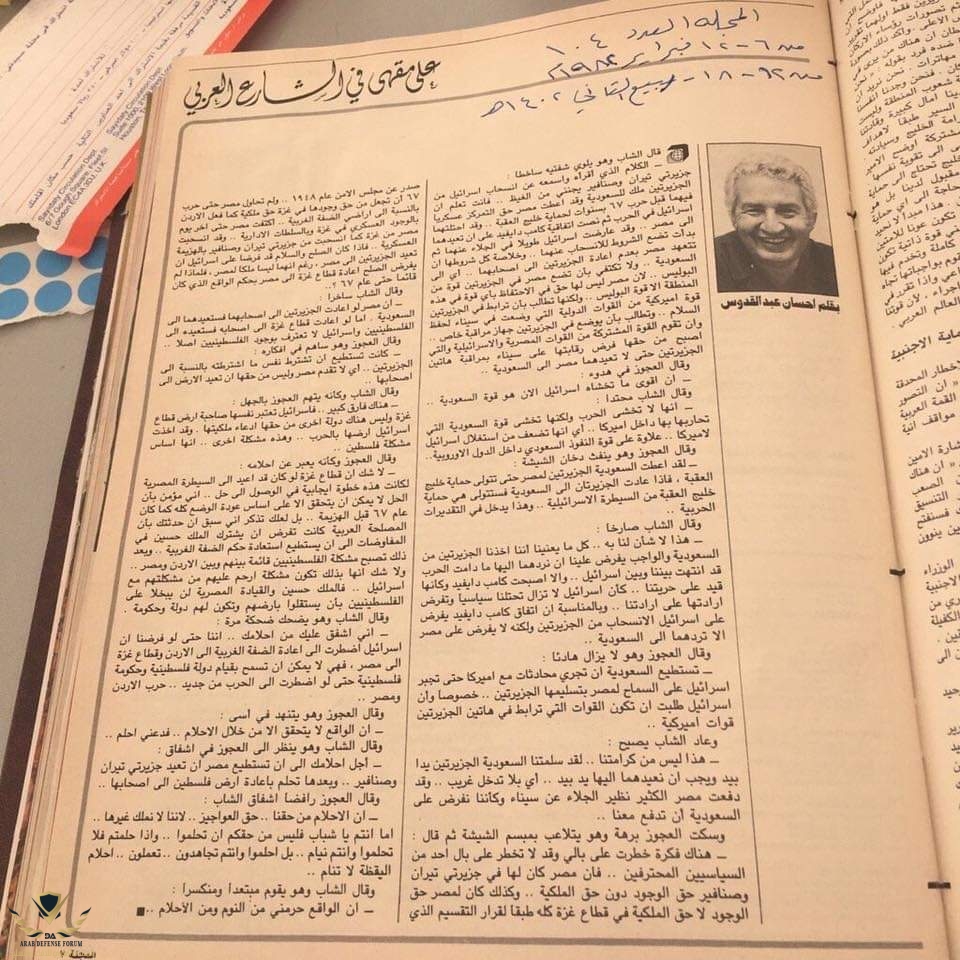 المجله العدد ١٠٤
من ٦-١٢ فبراير ١٩٨٢م
من ١٢-١٨ ربيع الثاني ١٤٠٢هـ
على مقهى في الشارع العربي
بقلم احسان عبد القدوس
قال الشاب وهو يلوي شفتيه ساخطا :
ــ الكلام الذي اقرأه واسمعه عن انسحاب اسرائيل من
جزيرتي تيران وصنافير يجنني من الغيظ .. فانت تعلم ان
الجزيرتين ملك للسعودية وقد اعطت مصر حق التمركز عسكريا
فيهما قبل حرب ٦٧ بسنوات لحماية خليج العقبة .. وقد احتلتهما
اسرائيل في الحرب ثم نصت اتفاقية كامب دايفيد على ان تعيدهما
الى مصر .. وقد عارضت اسرائيل طويلا في الجلاء عنهما ثم
بدأت تضع الشروط للانسحاب عنهما .. وخلاصة كل شروطها ان
تتعهد مصر بعدم اعادة الجزيرتين الى اصحابهما .. اي الى
السعودية .. ولا تكتفي بأن تضع مصر في الجزيرتين قوة من
البوليس .. لان مصر ليس لها حق في الاحتفاظ بأي قوة في هذه
المنطقة الا قوة البوليس .. ولكنها تطالب بأن ترابط في الجزيرتين
قوة اميركية من القوات الدولية التي وضعت في سيناء لحفظ
السلام .. وتطالب بأن يوضع في الجزيرتين جهاز مراقبة خاص ..
وان تقوم القوة المشتركة من القوات المصرية والاسرائيلية والتي
اصبح من حقها فرض رقابتها على سيناء بمراقبة هاتين
الجزيرتين حتى لا تعيدهما مصر الى السعودية ..
وقال العجوز في هدوء :
ــ ان اقوى ما تخشاه اسرائيل الان هو قوة السعودية ..
وقال الشاب محتدا :
ــ انها لا تخشى الحرب ولكنها تخشى قوة السعودية التي
تحاربها بها داخل اميركا .. أي انها تضعف من استغلال اسرائيل
لاميركا .. علاوة على قوة النفوذ السعودي داخل الدول الاوروبية ..
وقال العجوز وهو ينفث دخان الشيشة :
ــ لقد اعطت السعودية الجزيرتين لمصر حتى تتولى حماية خليج
العقبة ، فاذا عادت الجزيرتان الى السعودية فستتولى هي حماية
خليج العقبة من السيطرة الاسرائيلية .. وهذا يدخل في التقديرات
الحربية ..
وقال الشاب صارخا :
ــ هذا لا شأن لنا به .. كل ما يعنينا اننا اخذنا الجزيرتين من
السعودية والواجب يفرض علينا ان نردهما اليها ما دامت الحرب
قد انتهت بيننا وبين اسرائيل .. والا اصبحت كامب دايفيد وكأنها
قيد على حريتنا .. كأن اسرائيل لا تزال تحتلنا سياسيا وتفرض
ارادتها على ارادتنا .. وبالمناسبة ان اتفاق كامب دايفيد يفرض
على اسرائيل الانسحاب من الجزيرتين ولكنه لا يفرض على مصر
الا تردهما الى السعودية ..
وقال العجوز وهو لا يزال هادئا :
ــ تستطيع السعودية أن تجري محادثات مع اميركا حتى تجبر
اسرائيل على السماح لمصر بتسليمها الجزيرتين .. خصوصا وأن
اسرائيل طلبت ان تكون القوات التي ترابط في هاتين الجزيرتين
قوات اميركية ..
وعاد الشاب يصيح :
ــ هذا ليس من كرامتنا .. لقد سلمتنا السعودية الجزيرتين يدا
بيد ويجب ان نعيدهما اليها يد بيد .. أي بلا تدخل غريب .. وقد
دفعت مصر الكثير نظير الجلاء عن سيناء وكأننا نفرض على
السعودية أن تدفع معنا ..
وسكت العجوز برهة وهو يتلاعب بمبسم الشيشة ثم قال :
ــ هناك فكرة خطرت على بالي وقد لا تخطر على بال احد من
السياسيين المحترفين .. فان مصر كان لها في جزيرتي تيران
وصنافير حق الوجود دون حق الملكية .. وكذلك كان لمصر حق
الوجود لا حق الملكية في قطاع غزة كله طبقا لقرار التقسيم الذي
صدر عن مجلس الامن عام ١٩٤٨ .. ولم تحاول مصر حتى حرب
٦٧ أن تجعل من حق وجودها في غزة حق ملكية كما فعل الاردن
بالنسبة الى اراضي الضفة الغربية .. اكتفت مصر حتى اخر يوم
بالوجود العسكري في غزة وبالسلطات الادارية .. وقد انسحبت
مصر من غزة كما انسحبت من جزيرتي تيران وصنافير بالهزيمة
العسكرية .. فاذا كان الصلح والسلام قد فرضا على اسرائيل ان
تعيد الجزيرتين الى مصر ، رغم أنهما ليسا ملكا لمصر ، فلماذا لم
يفرض الصلح اعادة قطاع غزة الى مصر بحكم الواقع الذي كان
قائما حتى عام ٦٧ ؟..
وقال الشاب ساخرا :
ــ ان مصر لو اعادت الجزيرتين الى اصحابها فستعيدهما الى
السعودية . اما لو اعادت قطاع غزة الى اصحابه فستعيده الى
الفلسطينيين واسرائيل لا تعترف بوجود الفلسطينيين اصلا ..
وقال العجوز وهو ساهم في افكاره :
ــ كانت تستطيع ان تشترط نفس ما اشترطته بالنسبة الى
الجزيرتين .. أي لا تقدم مصر وليس من حقها ان تعيد الارض الى
أصحابها ..
وقال الشاب وكانه يتهم العجوز بالجهل :
ــ هناك فارق كبير .. فاسرائيل تعتبر نفسها صاحبة ارض قطاع
غزة وليس هناك دولة اخرى من حقها ادعاء ملكيتها .. وقد اخذت
اسرائيل ارضها بالحرب .. وهذه مشكلة اخرى .. انها اساس
مشكلة فلسطين ..
وقال العجوز وكأنه يعبر عن احلامه :
ــ لا شك ان قطاع غزة لو كان قد اعيد الى السيطرة المصرية
لكانت هذه خطوة ايجابية في الوصول الى حل .. اني مؤمن بأن
الحل لا يمكن ان يتحقق الا على اساس عودة الوضع كله كما كان
عام ٦٧ قبل الهزيمة .. بل لعلك تذكر اني سبق ان حدثتك بأن
المصلحة العربية كانت تفرض ان يشترك الملك حسين في
المفاوضات الى ان يستطيع استعادة حكم الضفة الغربية .. وبعد
ذلك تصبح مشكلة الفلسطينيين قائمة بينهم وبين الاردن ومصر ..
ولا شك انها بذلك تكون مشكلة ارحم عليهم من مشكلتهم مع
اسرائيل .. فالملك حسين والقيادة المصرية لن يبخلا على
الفلسطينيين بأن يستقلوا بارضهم وتكون لهم دولة وحكومة .
وقال الشاب وهو يضحك ضحكة مرة :
ــ اني اشفق عليك من احلامك .. اننا حتى لو فرضنا ان
اسرائيل اضطرت الى اعادة الضفة الغربية الى الاردن وقطاع غزة
الى مصر ، فهي لا يمكن ان تسمح بقيام دولة فلسطينية وحكومة
فلسطينية حتى لو اضطرت الى الحرب من جديد .. حرب الاردن
ومصر ..
وقال العجوز وهو يتنهد في أسى :
ــ ان الواقع لا يتحقق الا من خلال الاحلام .. فدعني احلم ..
وقال الشاب وهو ينظر الى العجوز في اشفاق :
ــ أجل احلامك الى ان تستطيع مصر ان تعيد جزيرتي تيران
وصنافير .. وبعدها تحلم باعادة ارض فلسطين الى اصحابها ..
وقال العجوز رافضا اشفاق الشاب :
ــ ان الاحلام من حقنا .. حق العواجيز .. لاننا لا نملك غيرها ..
اما انتم يا شباب فليس من حقكم ان تحلموا .. واذا حلمتم فلا
تحلموا وانتم نيام .. بل احلموا وانتم تجاهدون .. تعملون .. احلام
اليقظة لا تنام ..
وقال الشاب وهو يقوم مبتعدا ومنكسرا :
ــ ان الواقع حرمني من النوم ومن الأحلام ..
Saydaty Circulation Dept.
London EC4A 3DJ, U.K.
DA
ARAB DEFENSE FORUM